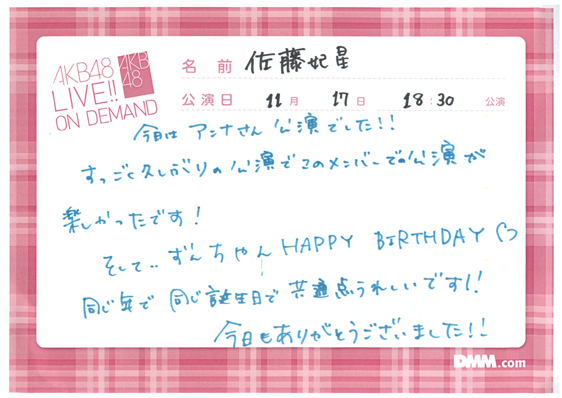 AKB48
LIVE!!
ON DEMAND
AKB
48
名前 佐藤妃星
公演日 11月 17日 18:30 公演
今日は アンナさん 公演でした!!
すっごく久しぶりの公演でこのメンバーでの公演が
楽しかったです!
そして.. ずんちゃん HAPPY BIRTHDAY
同じ年で 同じ誕生日で 共通点うれしいです!!
今日もありがとうございました!!
DMM.com